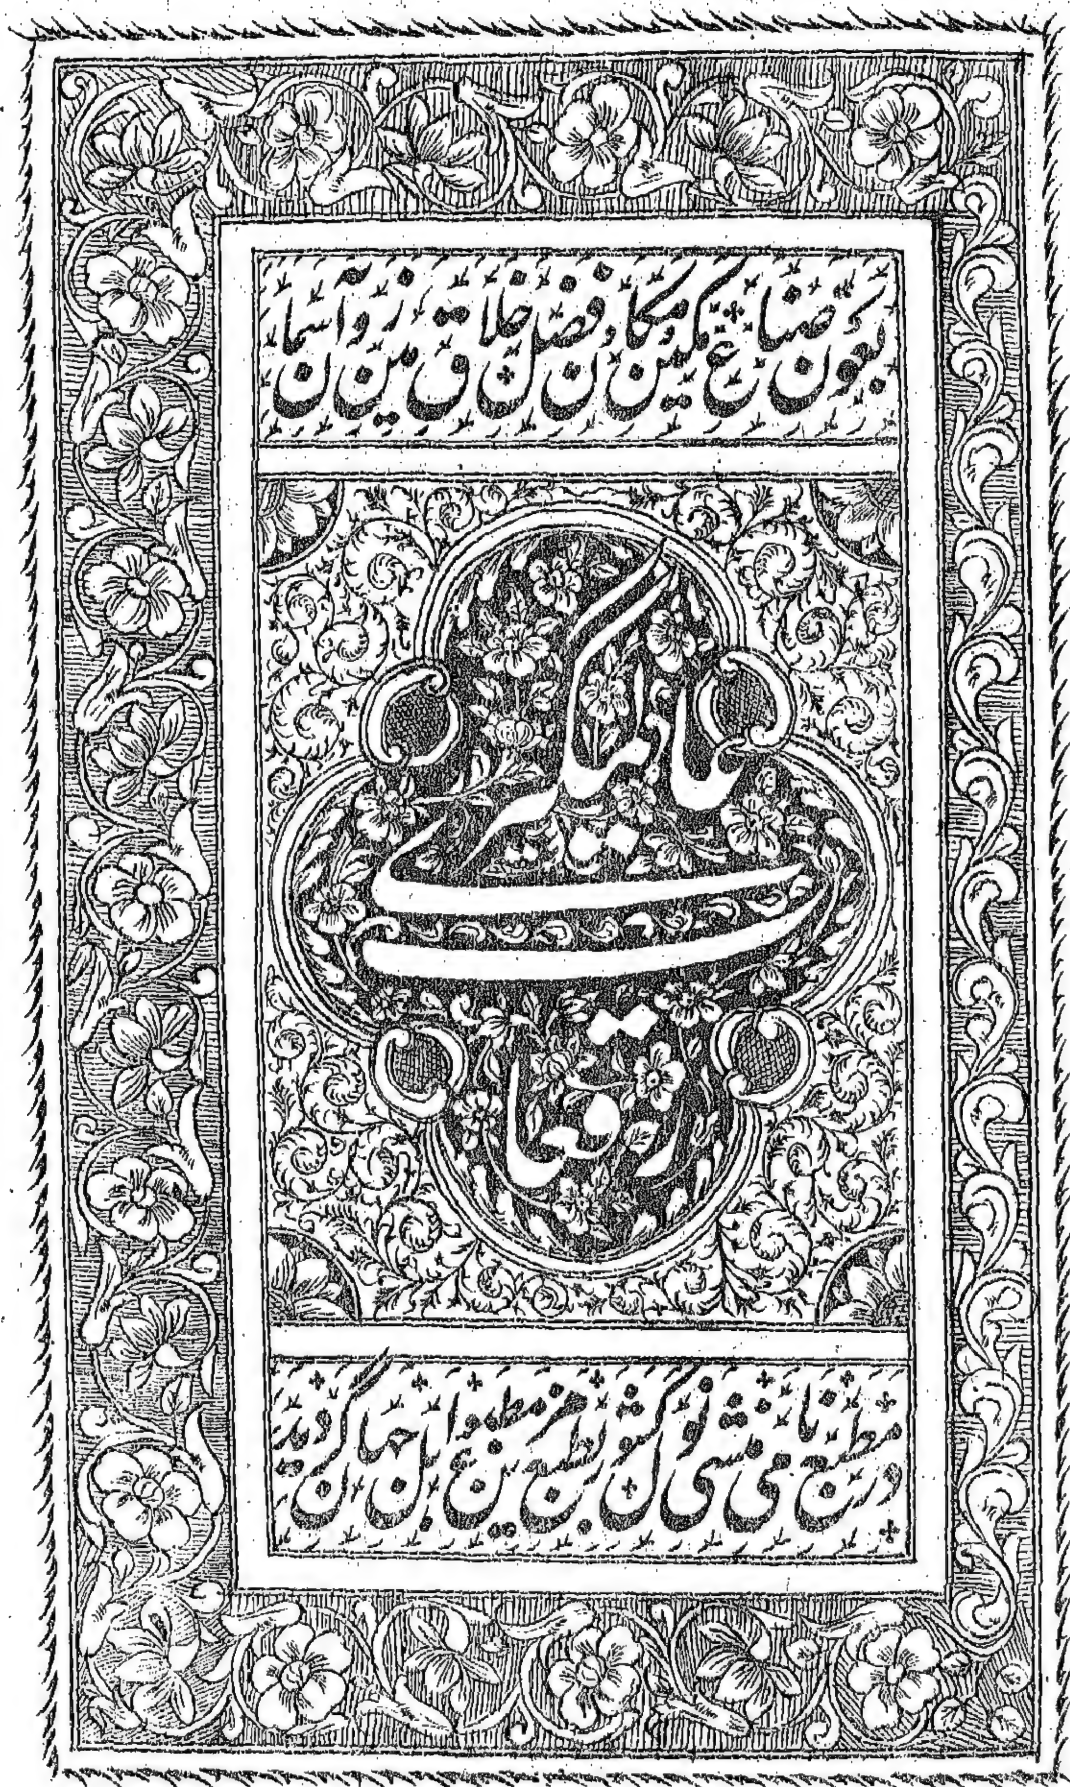 بعون صناع مکین و مکان و فضل خلاق زمین و آسمان
رقعات
عالمگیری
در مطبع نامی منشی نولکشور مطبوع اہل جہان گردید